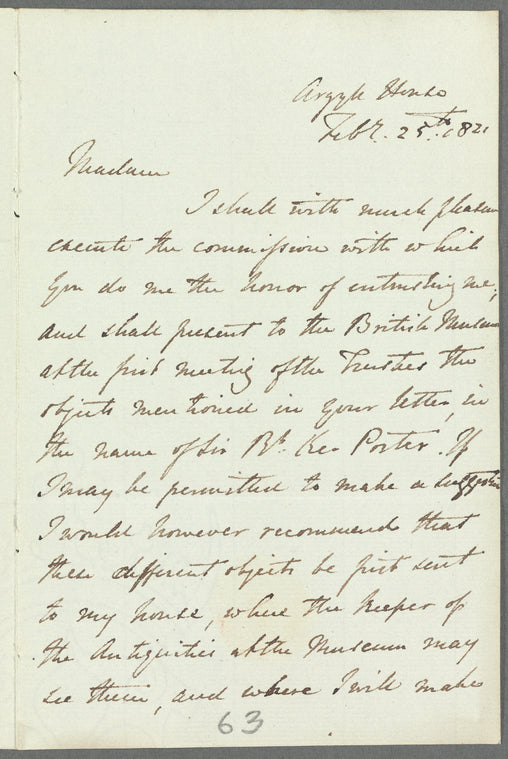 Argyll House
Feb.y. 25th. 1821
Madam
I shall with much pleasure
execute the commission with which
you do me the honor of entrusting me;
and shall present to the British Museum
at the first meeting of the Trustees the
objects mentioned in your letter, in
the name of Sir Rt. Ker Porter. If
I may be permitted to make a suggestion
I would however recommend that
these different objects be first sent
to my house, where the Keeper of
the Antiquities at the Museum may
see them, and where I will make
63